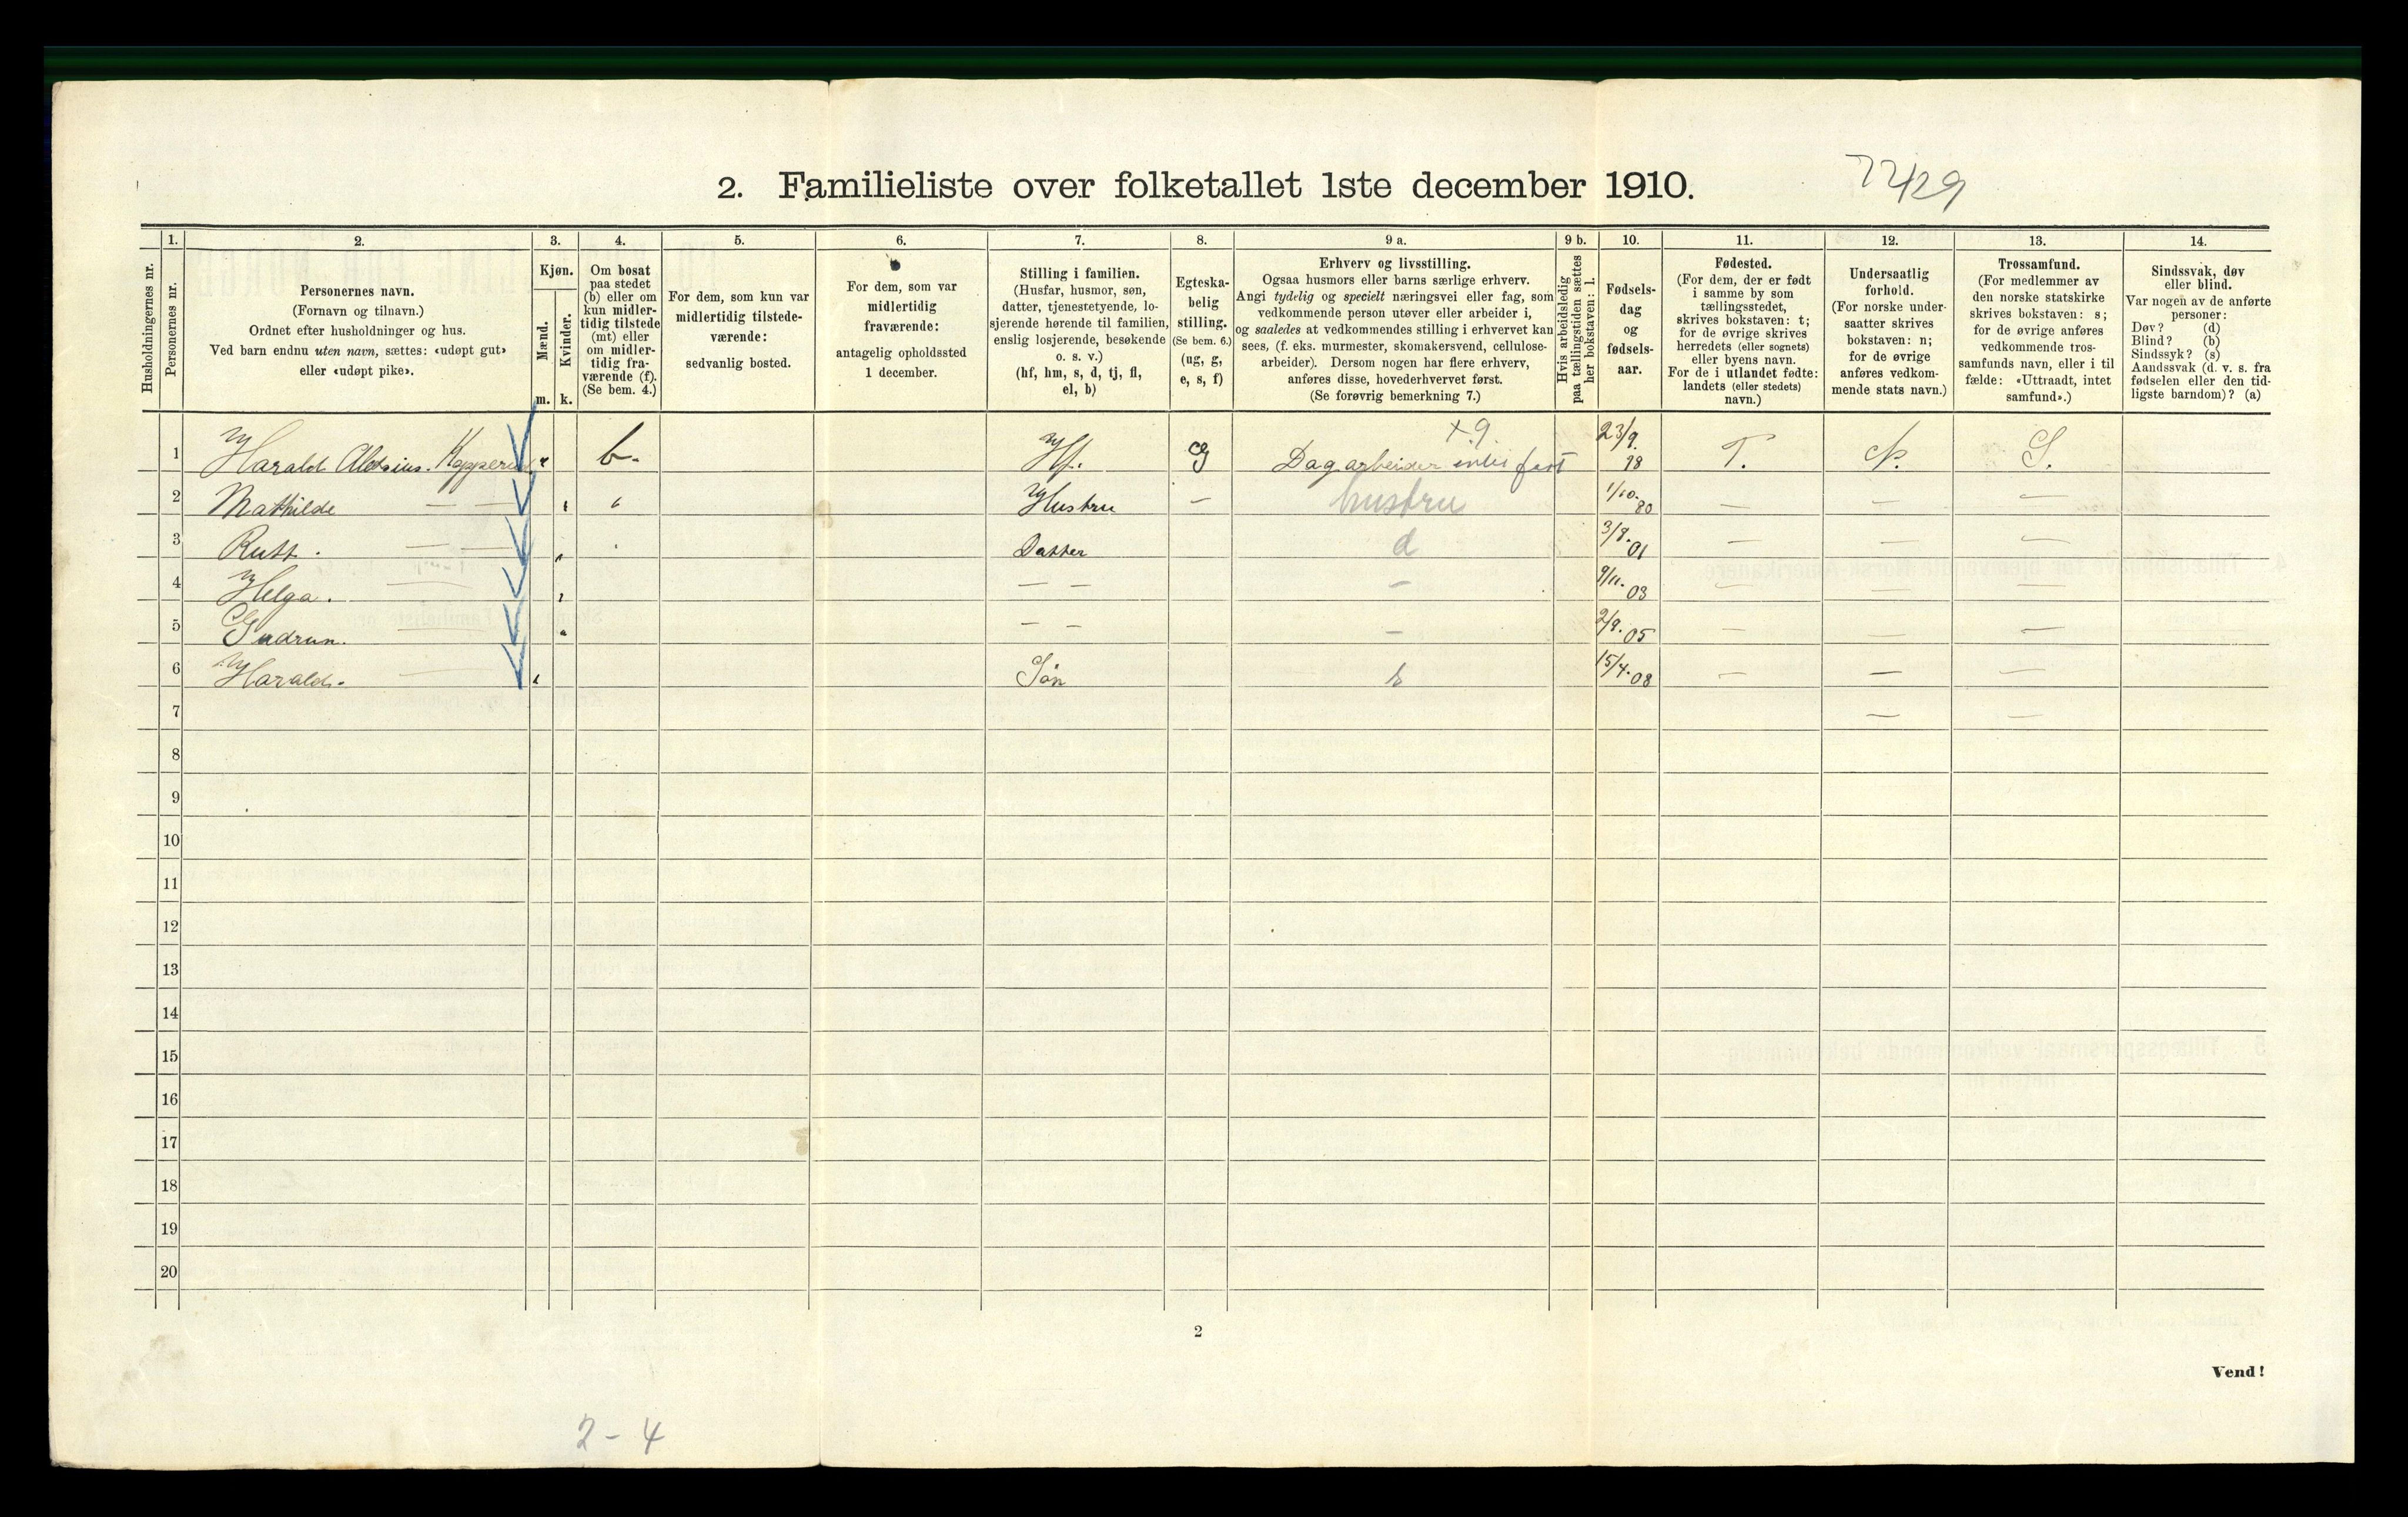 2. Familieliste over folketallet 1ste december 1910.
7429
Husholdningernes nr.
1. Personernes nr.
2. Personernes navn. (Fornavn og tilnavn.) Ordnet efter husholdninger og hus. Ved barn endnu uten navn, sættes: «udøpt gut» eller «udøpt pike».
3. Kjøn. Mænd. m. Kvinder. k.
4. Om bosat paa stedet (b) eller om kun midlertidig tilstede (mt) eller om midlertidig fraværende (f). (Se bem. 4.)
5. For dem, som kun var midlertidig tilstedeværende: sedvanlig bosted.
6. For dem, som var midlertidig fraværende: antagelig opholdssted 1 december.
7. Stilling i familien. (Husfar, husmor, søn, datter, tjenestetyende, losjerende hørende til familien, enslig losjerende, besøkende o. s. v.) (hf, hm, s, d, tj, fl, el, b)
8. Egteskabelig stilling. (Se bem. 6.) (ug, g, e, s, f)
9 a. Erhverv og livsstilling. Ogsaa husmors eller barns særlige erhverv. Angi tydelig og specielt næringsvei eller fag, som vedkommende person utøver eller arbeider i, og saaledes at vedkommendes stilling i erhvervet kan sees, (f. eks. murmester, skomakersvend, cellulosearbeider). Dersom nogen har flere erhverv, anføres disse, hovederhvervet først. (Se forøvrig bemerkning 7.)
9 b. Hvis arbeidsledig paa tællingstiden sættes her bokstaven: l.
10. Fødselsdag og fødselsaar.
11. Fødested. (For dem, der er født i samme by som tællingsstedet, skrives bokstaven: t; for de øvrige skrives herredets (eller sognets) eller byens navn. For de i utlandet fødte: landets (eller stedets) navn.)
12. Undersaatlig forhold. (For norske undersaatter skrives bokstaven: n; for de øvrige anføres vedkommende stats navn.)
13. Trossamfund. (For medlemmer av den norske statskirke skrives bokstaven: s; for de øvrige anføres vedkommende trossamfunds navn, eller i tilfælde: «Uttraadt, intet samfund».)
14. Sindssvak, døv eller blind. Var nogen av de anførte personer: Døv? (d) Blind? (b) Sindssyk? (s) Aandssvak (d. v. s. fra fødselen eller den tidligste barndom)? (a)
1 Harald b. Hf. g x.9. Dagarbeider fast 23/9. 78 T. N. S.
2 Mathilde — — Hustru — hustru 1/10. 80 — — —
3 Rutt. — — Datter d 3/8. 01 — — —
4 Helga. — — — — 9/11. 03 — — —
5 Gudrun. — — — — 2/9. 05 — — —
6 Harald. — Søn s 15/4. 08 — — —
7 — —
8
9
10
11
12
13
14
15
16
17
18
19
20
2
Vend!
2 - 4